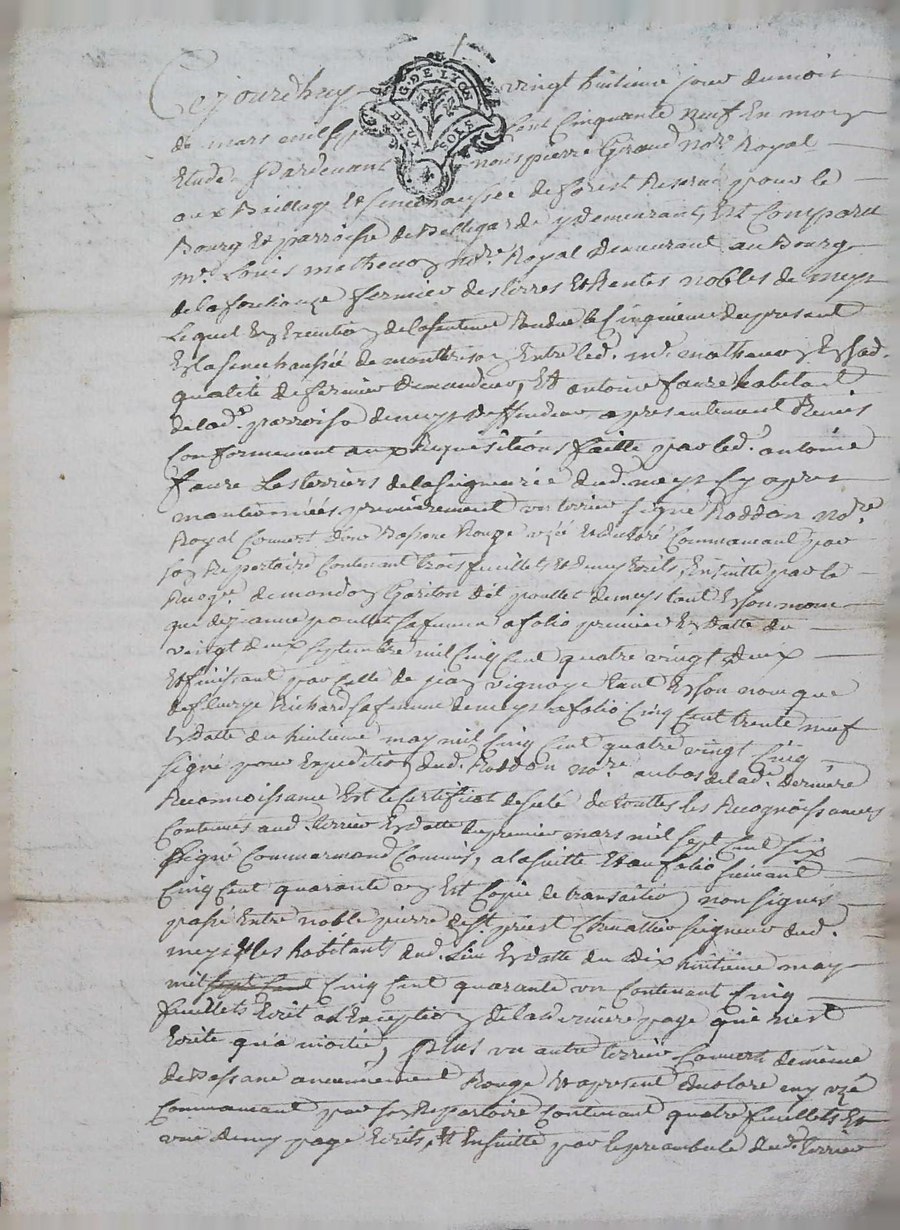 Cejourdhuy vingt huitieme jour du mois
de mars mil sept cent cinquante neuf En mon
Etude Pardevant nous pierre Giraud no.re Royal
G. DE LYON
DEUX SOLS
aux Bailliage Et senechaussée de forest Reservé pour le
Bourg Et parroisse de Bellegarde y demeurant, Est Comparu
m.e Louis matheuon no.re Royal demeurant au Bourg
de la fouillouze fermier des terres Et Rentes nobles de meys
Lequel En Execution de la sentence Rendue le Cinquieme du present
En la senechaussée de montbrison Entre led. m.e matheuon En sad.
qualité de fermier demandeur, Et antoine faure habitant
de lad.e parroisse de meys deffendeur a presentement Remis
Conformement aux Requisitions faitte par led.t antoine
faure Les terriers de la seigneurie dud. meys Cy apres
mantionnées, premierement un terrier signé Roddon no.re
Royal Couvert d'un Basane Rouge uzé Et dechiré Commancant par
son Repertoire Contenant trois feuillets Et demy Ecrits, Ensuitte par la
Recog.e de mandon Gariton dit poullet de meys tant En son nom
que de jeanne poullet sa femme a folio premier En datte du
vaingt deux septembre mil Cinq Cent quatre vingt deux
Et finissant par Celle de jean vignoye tant En son nom que
de fleurye Richard sa femme de meys a folio Cinq Cent trente neuf
En datte du huitieme may mil Cinq Cent quatre vingt Cinq
signé pour Expedition dud. Roddon no.re au bas de lad.e derniere
Reconnoissance Est le Certificat de selé de touttes les Recognoissances
Contenues aud. terrier En datte du premier mars mil sept Cent six
signé Commarmond Commis, a la suitte Et au folio suivant
Cinq Cent quarante un Est Copie de transaction non signée
passé Entre noble pierre de s.t priest Chevallier seigneur dud.
meys Et les habitants dud. Lieu En datte du dix huitieme may
mil sept cent Cinq Cent quarante un Contenant Cinq
feuillets Ecrit a l'Exception de la derniere page qui n'est
Ecrite qu'a moitié, plus un autre terrier Couvert de même
de Bassane anciennement Rouge Et apresent
Commancant par son Repertoire Contenant quatre feuillets Et
une demy page Ecrits, Et Ensuitte par le preambule dud. terrier